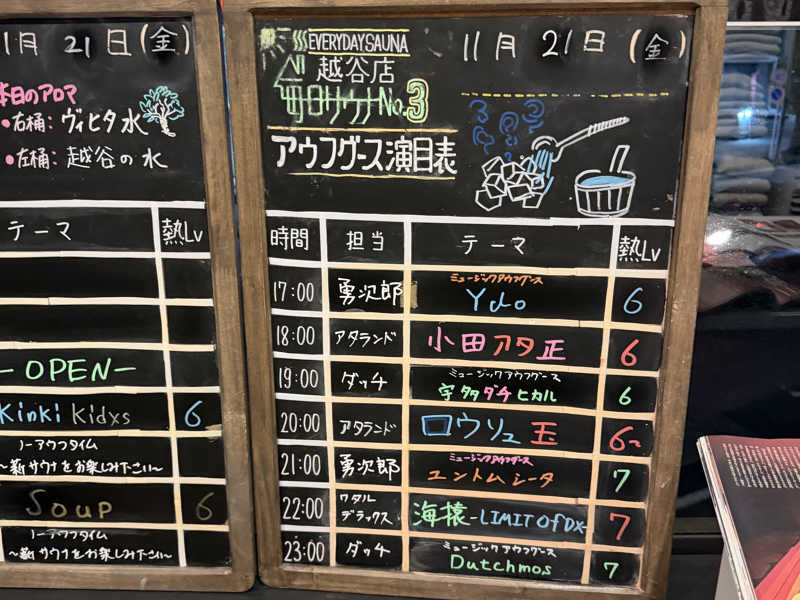 1月 21日(金)
本日のアロマ
•右桶: ヴィヒタ水
•左桶: 越谷の水
テーマ 熱Lv
-OPEN-
Kinki Kidxs 6
ノーアウフタイム
〜薪サウナをお楽しみ下さい〜
Soup 6
ノーアウフタイム
〜薪サウナをお楽しみ下さい〜
EVERYDAY SAUNA 11月 21日 (金)
越谷店
毎日サウナNo.3
アウフグース演目表
時間 担当 テーマ 熱Lv
ミュージックアウフグース
17:00 勇次郎 Ydo 6
18:00 アタランド 小田アタ正 6
ミュージックアウフグース
19:00 ダッチ 宇多ダチヒカル 6
20:00 アタランド ロウリュ玉 6~
ミュージックアウフグース
21:00 勇次郎 ユントムシータ 7
22:00 ワタルデラックス 海猿-LIMIT Of DX- 7
ミュージックアウフグース
23:00 ダッチ Dutchmos 7